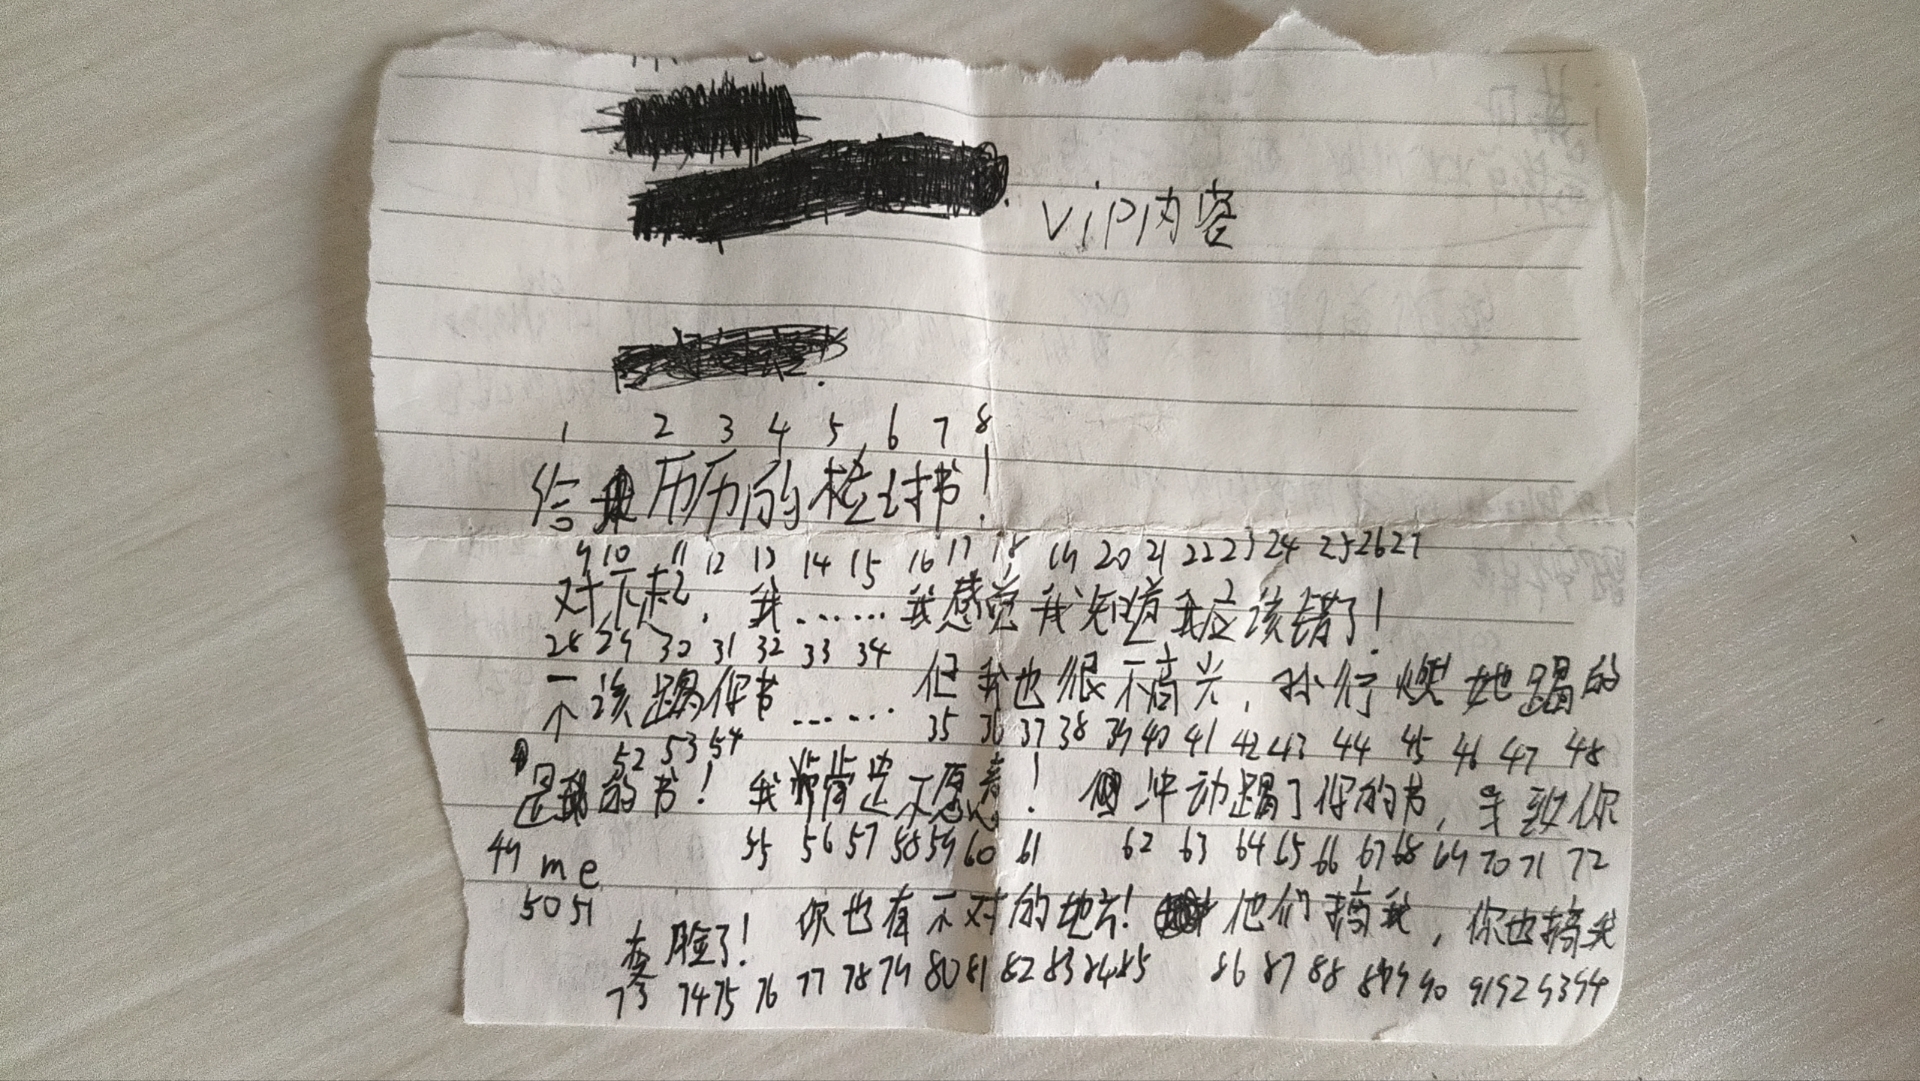 vip内容
1 2 3 4 5 6 7 8
给历历的检讨书!
9 10 11 12 13 14 15 16 17 18 19 20 21 22 23 24 25 26 27
对不起,我……我感觉我知道我应该错了!
28 29 30 31 32 33 34
不该踢你书……但我也很不高兴,孙行燃她踢的
35 36 37 38 39 40 41 42 43 44 45 46 47 48
是我的书!我非常是不愿意!冲动踢了你的书,导致你
52 53 54
49 me 55 56 57 58 59 60 61 62 63 64 65 66 67 68 69 70 71 72
50 51
变脸了!你也有不对的地方!他们搞我,你也搞我
73 74 75 76 77 78 79 80 81 82 83 84 85 86 87 88 89 90 91 92 93 94